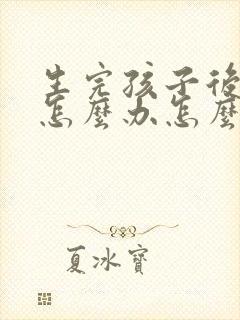 生完孩子後
怎麼办怎麼
夏冰寶